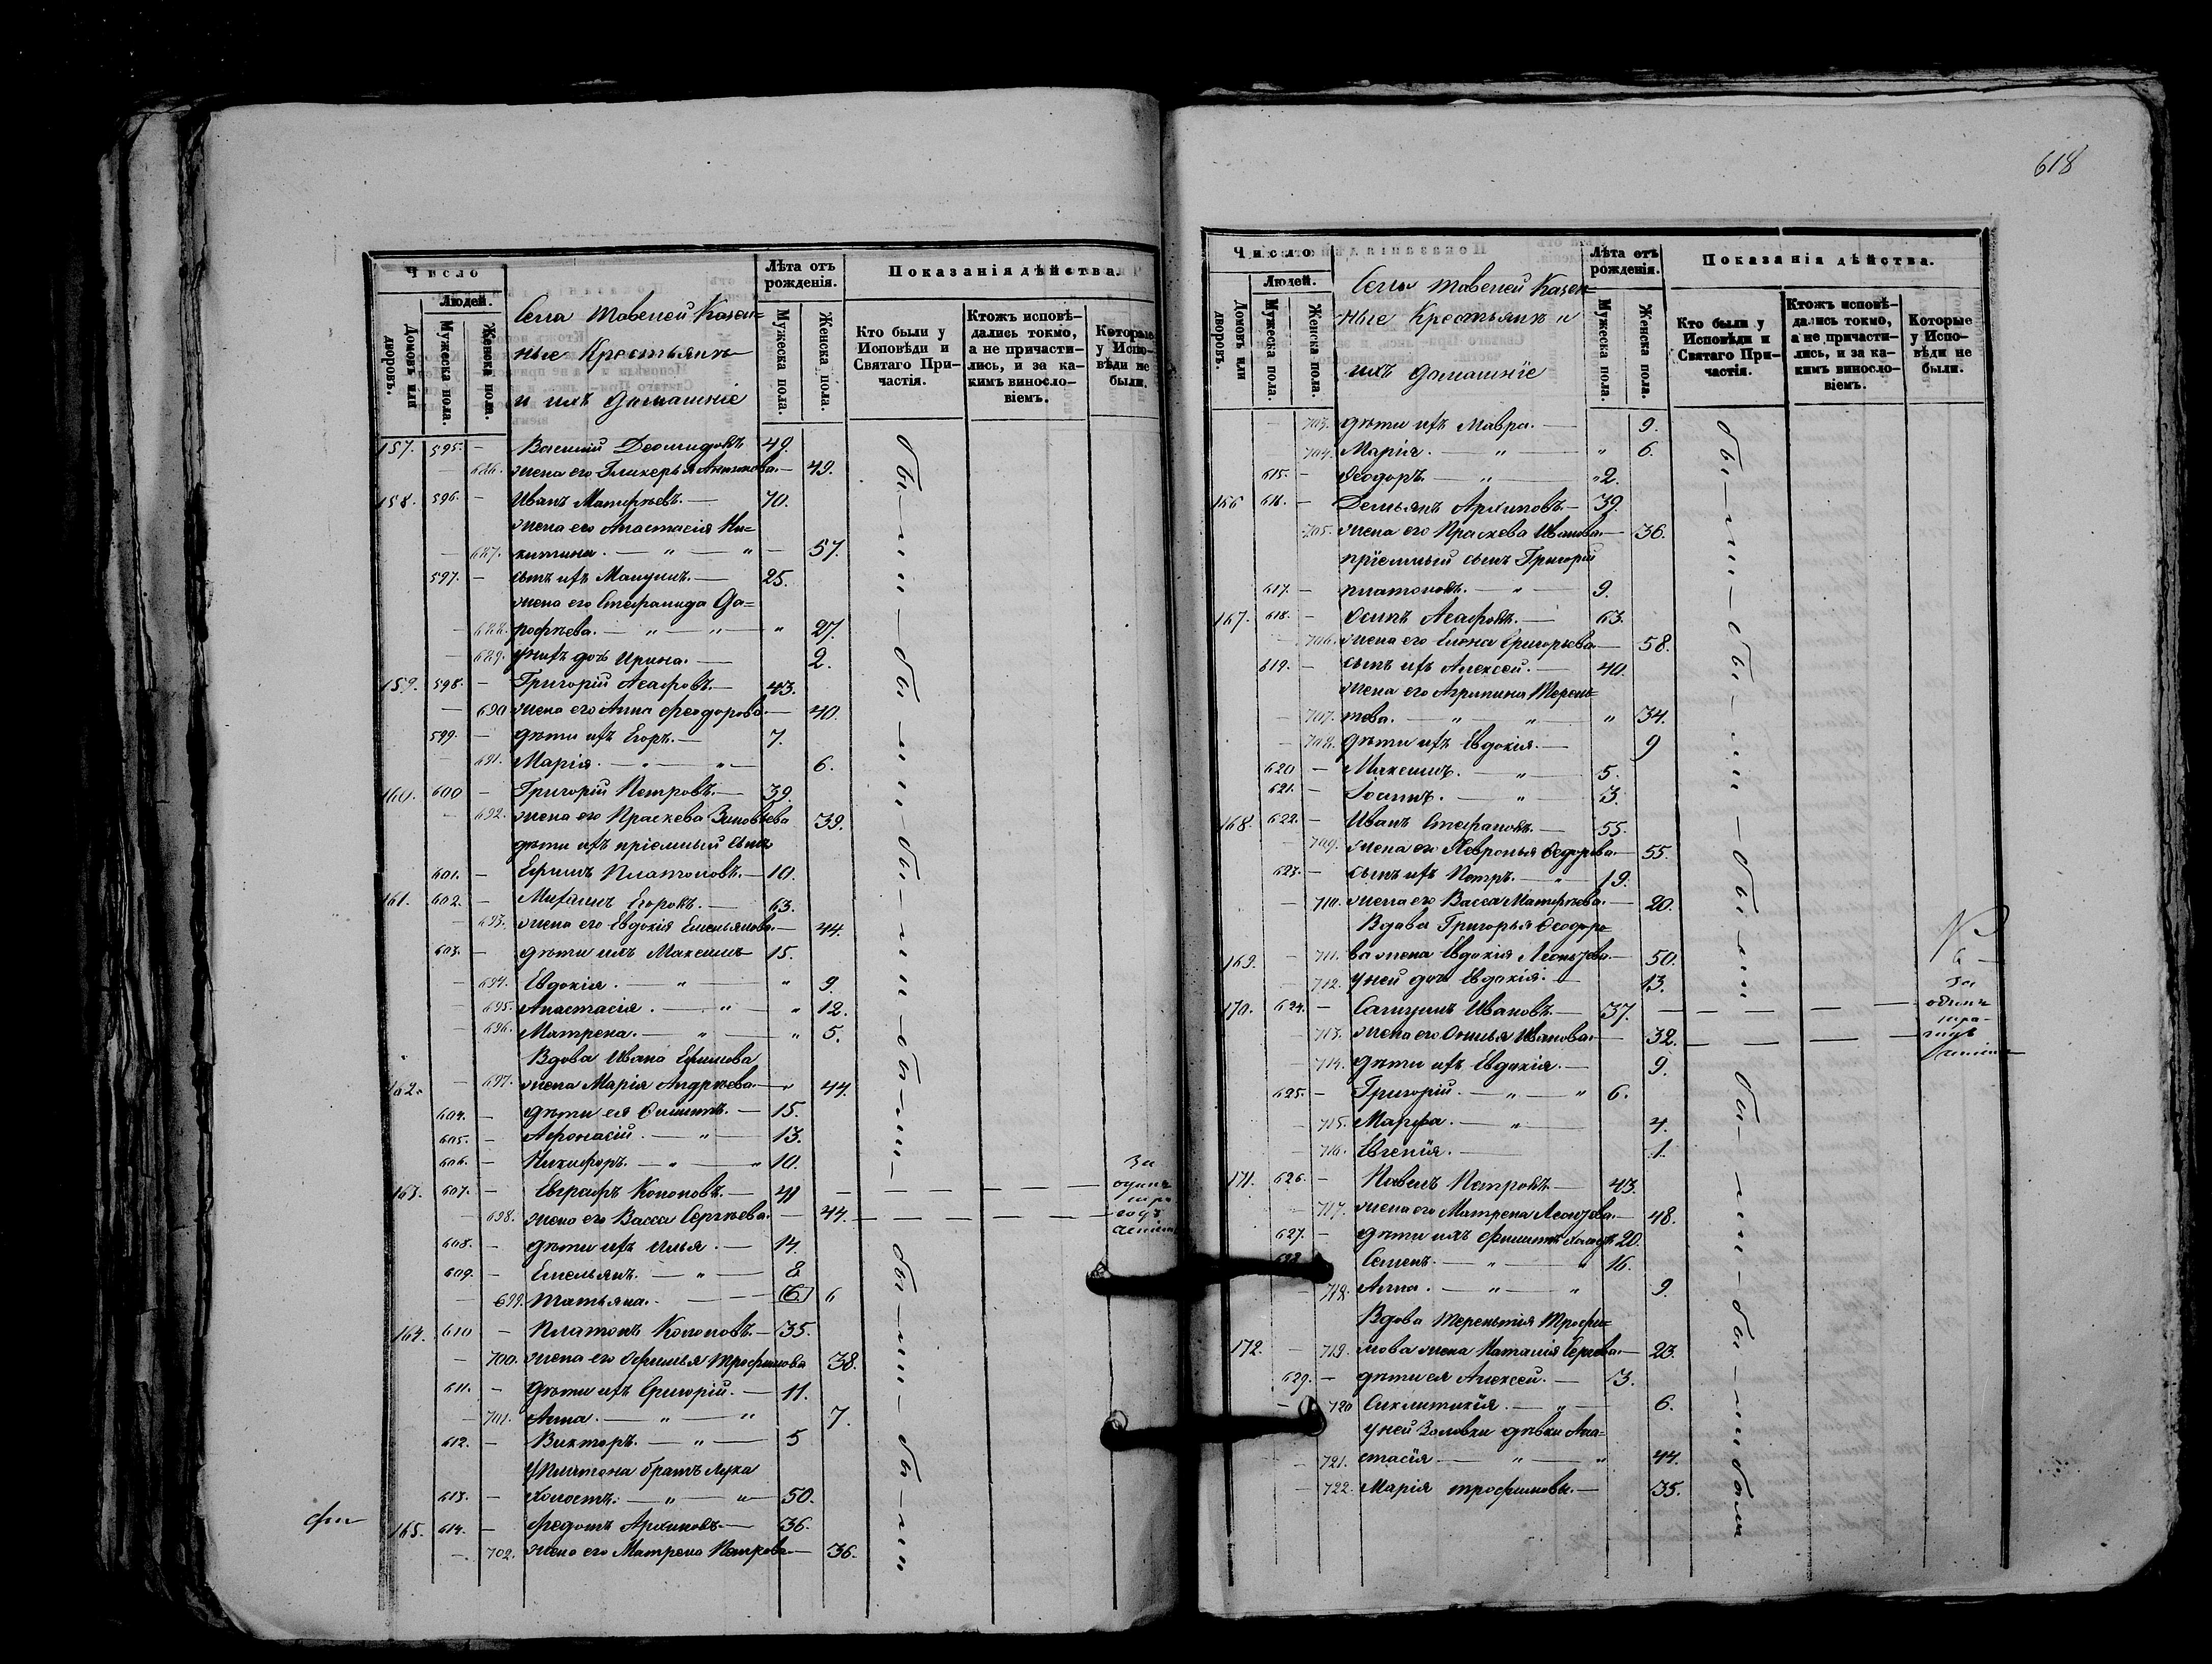 618
Число
Людей.
Домовъ или дворовъ.
Мужеска пола.
Женска пола.
Села Тавеней Казен=
ные Крестьянъ
и ихъ домашніе
Лѣта отъ рожденія.
Мужеска пола.
Женска пола.
Показанія дѣйства.
Кто были у Исповѣди и Святаго Причастія.
Ктожъ исповѣдались токмо, а не причастились, и за какимъ винословіемъ.
Которые у Исповѣди не были.
157. 595. — Василій Деомидовъ 49.
— 686. жена его Гликерья Антипова — 49.
158. 596. — Иванъ Матфѣевъ. — 70.
жена его Анастасія Ни=
— 687. китина. — " — " — 57.
597. — сынъ ихъ — 25.
жена его Стефанида До=
— 688. рофѣева. — " — " — " 27.
— 689. у нихъ дочь Ирина. — 2.
159. 598. — Григорій Асафовъ. — 43.
— 690 жена его Анна Феодорова. — 40.
599. — дѣти ихъ Егоръ. — 7.
— 691. Марія. — " — " — 6.
160. 600 — Григорій Петровъ. — 39.
— 692. жена его Праскева Зиновьева 39.
дѣти ихъ пріемный сынъ
601. — Ефимъ Платоновъ. — 10.
161. 602. — Михаилъ Егоровъ. — 63.
— 693. жена его Евдокія Емельянова. — 44.
603. — дѣти ихъ Максимъ 15.
— 694. Евдокія. — " — " 9.
— 695. Анастасія. — " — " 12.
— 696. Матрена. — " — " 5.
Вдова Ивана Ефимова
162. — 697. жена Марія Андрѣева. — " 44.
604. — дѣти ея Филиппъ. — 15.
605. — Афонасій. — " — 13.
606. — Никифоръ. — " — " 10.
163. 607. — Евграфъ Кононовъ. — 41 — — — —
— 698. жена его Васса Сергѣева. — 44. — — — —
За
одинъ
годъ
608. — дѣти ихъ Илья. — 14.
609. — Емельянъ. — " — 8
— 699. Татьяна. — — 6 6
164. 610 — Платонъ Кононовъ. — 35.
— 700. жена его Офимья Трофимова 38.
611. — дѣти ихъ Григорій. — 11.
— 701. Анна. — " — " 7.
612. — Викторъ. — " — 5
У Платона братъ Лука
613. — холостъ. — " — " — 50.
165. 614. — Федотъ Архиповъ. — 36.
— 702. жена его Матрена Петрова — 36.
бы — ли — бы — ли — бы — ли — бы — ли —
бы — ли — бы — ли
Число
Людей.
Домовъ или дворовъ.
Мужеска пола.
Женска пола.
Села Тавеней Казен=
ные Крестьянъ и
ихъ домашніе
Лѣта отъ рожденія.
Мужеска пола.
Женска пола.
Показанія дѣйства.
Кто были у Исповѣди и Святаго Причастія.
Ктожъ исповѣдались токмо, а не причастились, и за какимъ винословіемъ.
Которые у Исповѣди не были.
— 703. дѣти ихъ Мавра. — 9.
— 704. Марія. — " — " 6.
615. — Феодоръ. — " — " 2.
166 616. — Демьянъ Архиповъ. — 39.
— 705. жена его Праскева Иванова. — 36.
пріемный сынъ Григорій
617. — Платоновъ. — " — 9.
167. 618. — Осипъ Асафовъ. — 63.
— 706. жена его Елена Григорьева — 58.
619. — сынъ ихъ Алексей. — 40.
жена его Агрипина Терень=
— 707. това. — " — " — " 34.
— 708. дѣти ихъ Евдокія. — 9
620 — Максимъ. — " — 5.
621. — Іоаннъ. — " — 3.
168. 622. — Иванъ Стефановъ. — 55.
— 709. жена его Февронья Федорова. — 55.
623. — сынъ ихъ Петръ. — " — 19.
— 710. жена его Васса Матфѣева. — 20.
Вдова Григорья Феодоро=
169. — 711. ва жена Евдокія Леонтьева. — 50.
— 712. у ней дочь Евдокія. — 13.
170. 624. — Ивановъ. — 37. — — — —
— 713. жена его Офимья Иванова. — 32. — — — —
За
одинъ
годъ
— 714. дѣти ихъ Евдокія. — 9.
625. — Григорій. — " — " 6.
— 715. Марфа. — " — 4.
— 716. Евгенія. — 1.
171. 626. — Павелъ Петровъ. — 43.
— 717. жена его Матрена Леонтьева. — 48.
627. — дѣти ихъ Филиппъ холостъ 20.
628 — Семенъ. — " — " 16.
— 718. Анна. — " — " 9.
Вдова Терентія Трофи=
172. — 719. мова жена Наталія Сергѣева. — 23.
629. — дѣти ея Алексей. — 3.
— 720 Сиклитикія. — " — 6.
у ней Золовки дѣвки Ана=
— 721. стасія — " — " 44.
— 722. Марія Трофимовы. — 35.
бы — ли — бы — ли — бы — ли
бы — ли — бы — ли были